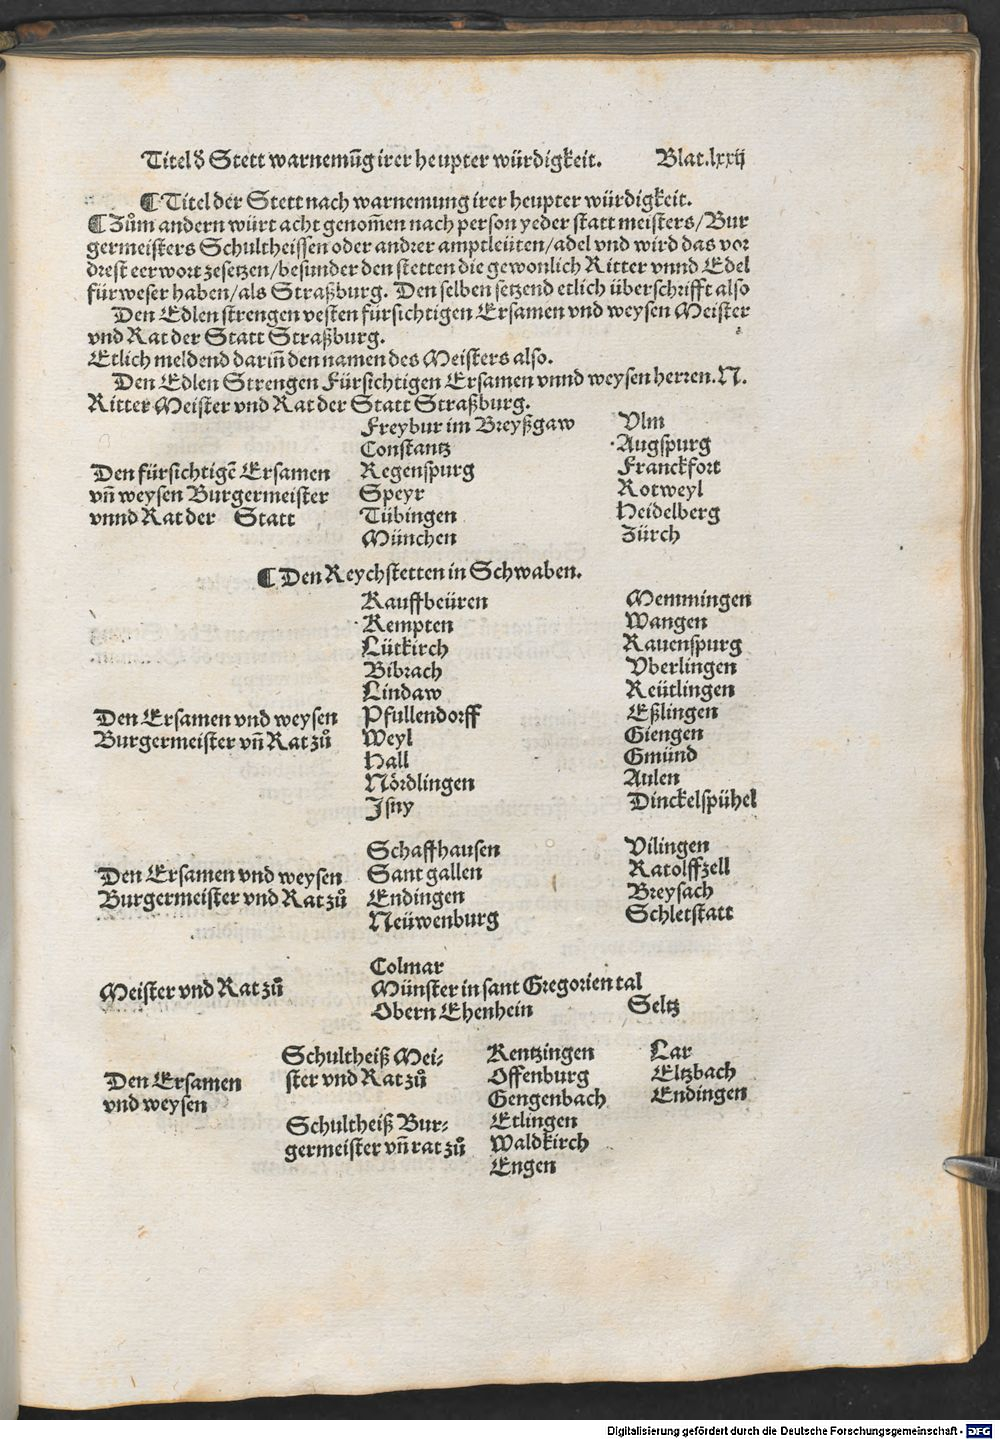 Titel d̕ Stett warnemūg irer heupter würdigkeit. Blat.lxxij
¶ Titel der Stett nach warnemung irer heupter würdigkeit.
¶ Zům andern würt acht genom̄en nach person yeder statt meisters/Bur
germeisters Schultheissen oder andrer amptleüten/adel vnd wird das vor
drest eerwort zesetzen/besunder den stetten die gewonlich Ritter vnnd Edel
fürweser haben/als Straßburg. Den selben setzend etlich überschrifft also
Den Edlen strengen vesten fürsichtigen Ersamen vnd weysen Meister
vnd Rat der Statt Straßburg.
Etlich meldend darin̄ den namen des Meisters also.
Den Edlen Strengen Fürsichtigen Ersamen vnnd weysen herren.N.
Ritter Meister vnd Rat der Statt Straßburg.
Den fürsichtigē Ersamen
vn̄ weysen Burgermeister
vnnd Rat der Statt
Freybur im Breyßgaw
Constantz
Regenspurg
Speyr
Tübingen
München
Vlm
Augspurg
Franckfort
Rotweyl
Heidelberg
Zürch
¶ Den Reychstetten in Schwaben.
Den Ersamen vnd weysen
Burgermeister vn̄ Rat zů
Kauffbeüren
Kempten
Lütkirch
Bibrach
Lindaw
Pfullendorff
Weyl
Hall
Nördlingen
Jsny
Memmingen
Wangen
Rauenspurg
Vberlingen
Reütlingen
Eßlingen
Giengen
Gmünd
Aulen
Dinckelspühel
Den Ersamen vnd weysen
Burgermeister vnd Rat zů
Schaffhausen
Sant gallen
Endingen
Neüwenburg
Vilingen
Ratolffzell
Breysach
Schletstatt
Meister vnd Rat zů
Colmar
Münster in sant Gregorien tal
Obern Ehenhein Seltz
Den Ersamen
vnd weysen
Schultheiß Mei⸗
ster vnd Rat zů
Kentzingen
Offenburg
Gengenbach
Lar
Eltzbach
Endingen
Schultheiß Bur⸗
germeister vn̄ rat zů
Etlingen
Waldkirch
Engen
Digitalisierung gefördert durch die Deutsche Forschungsgemeinschaft - DFG